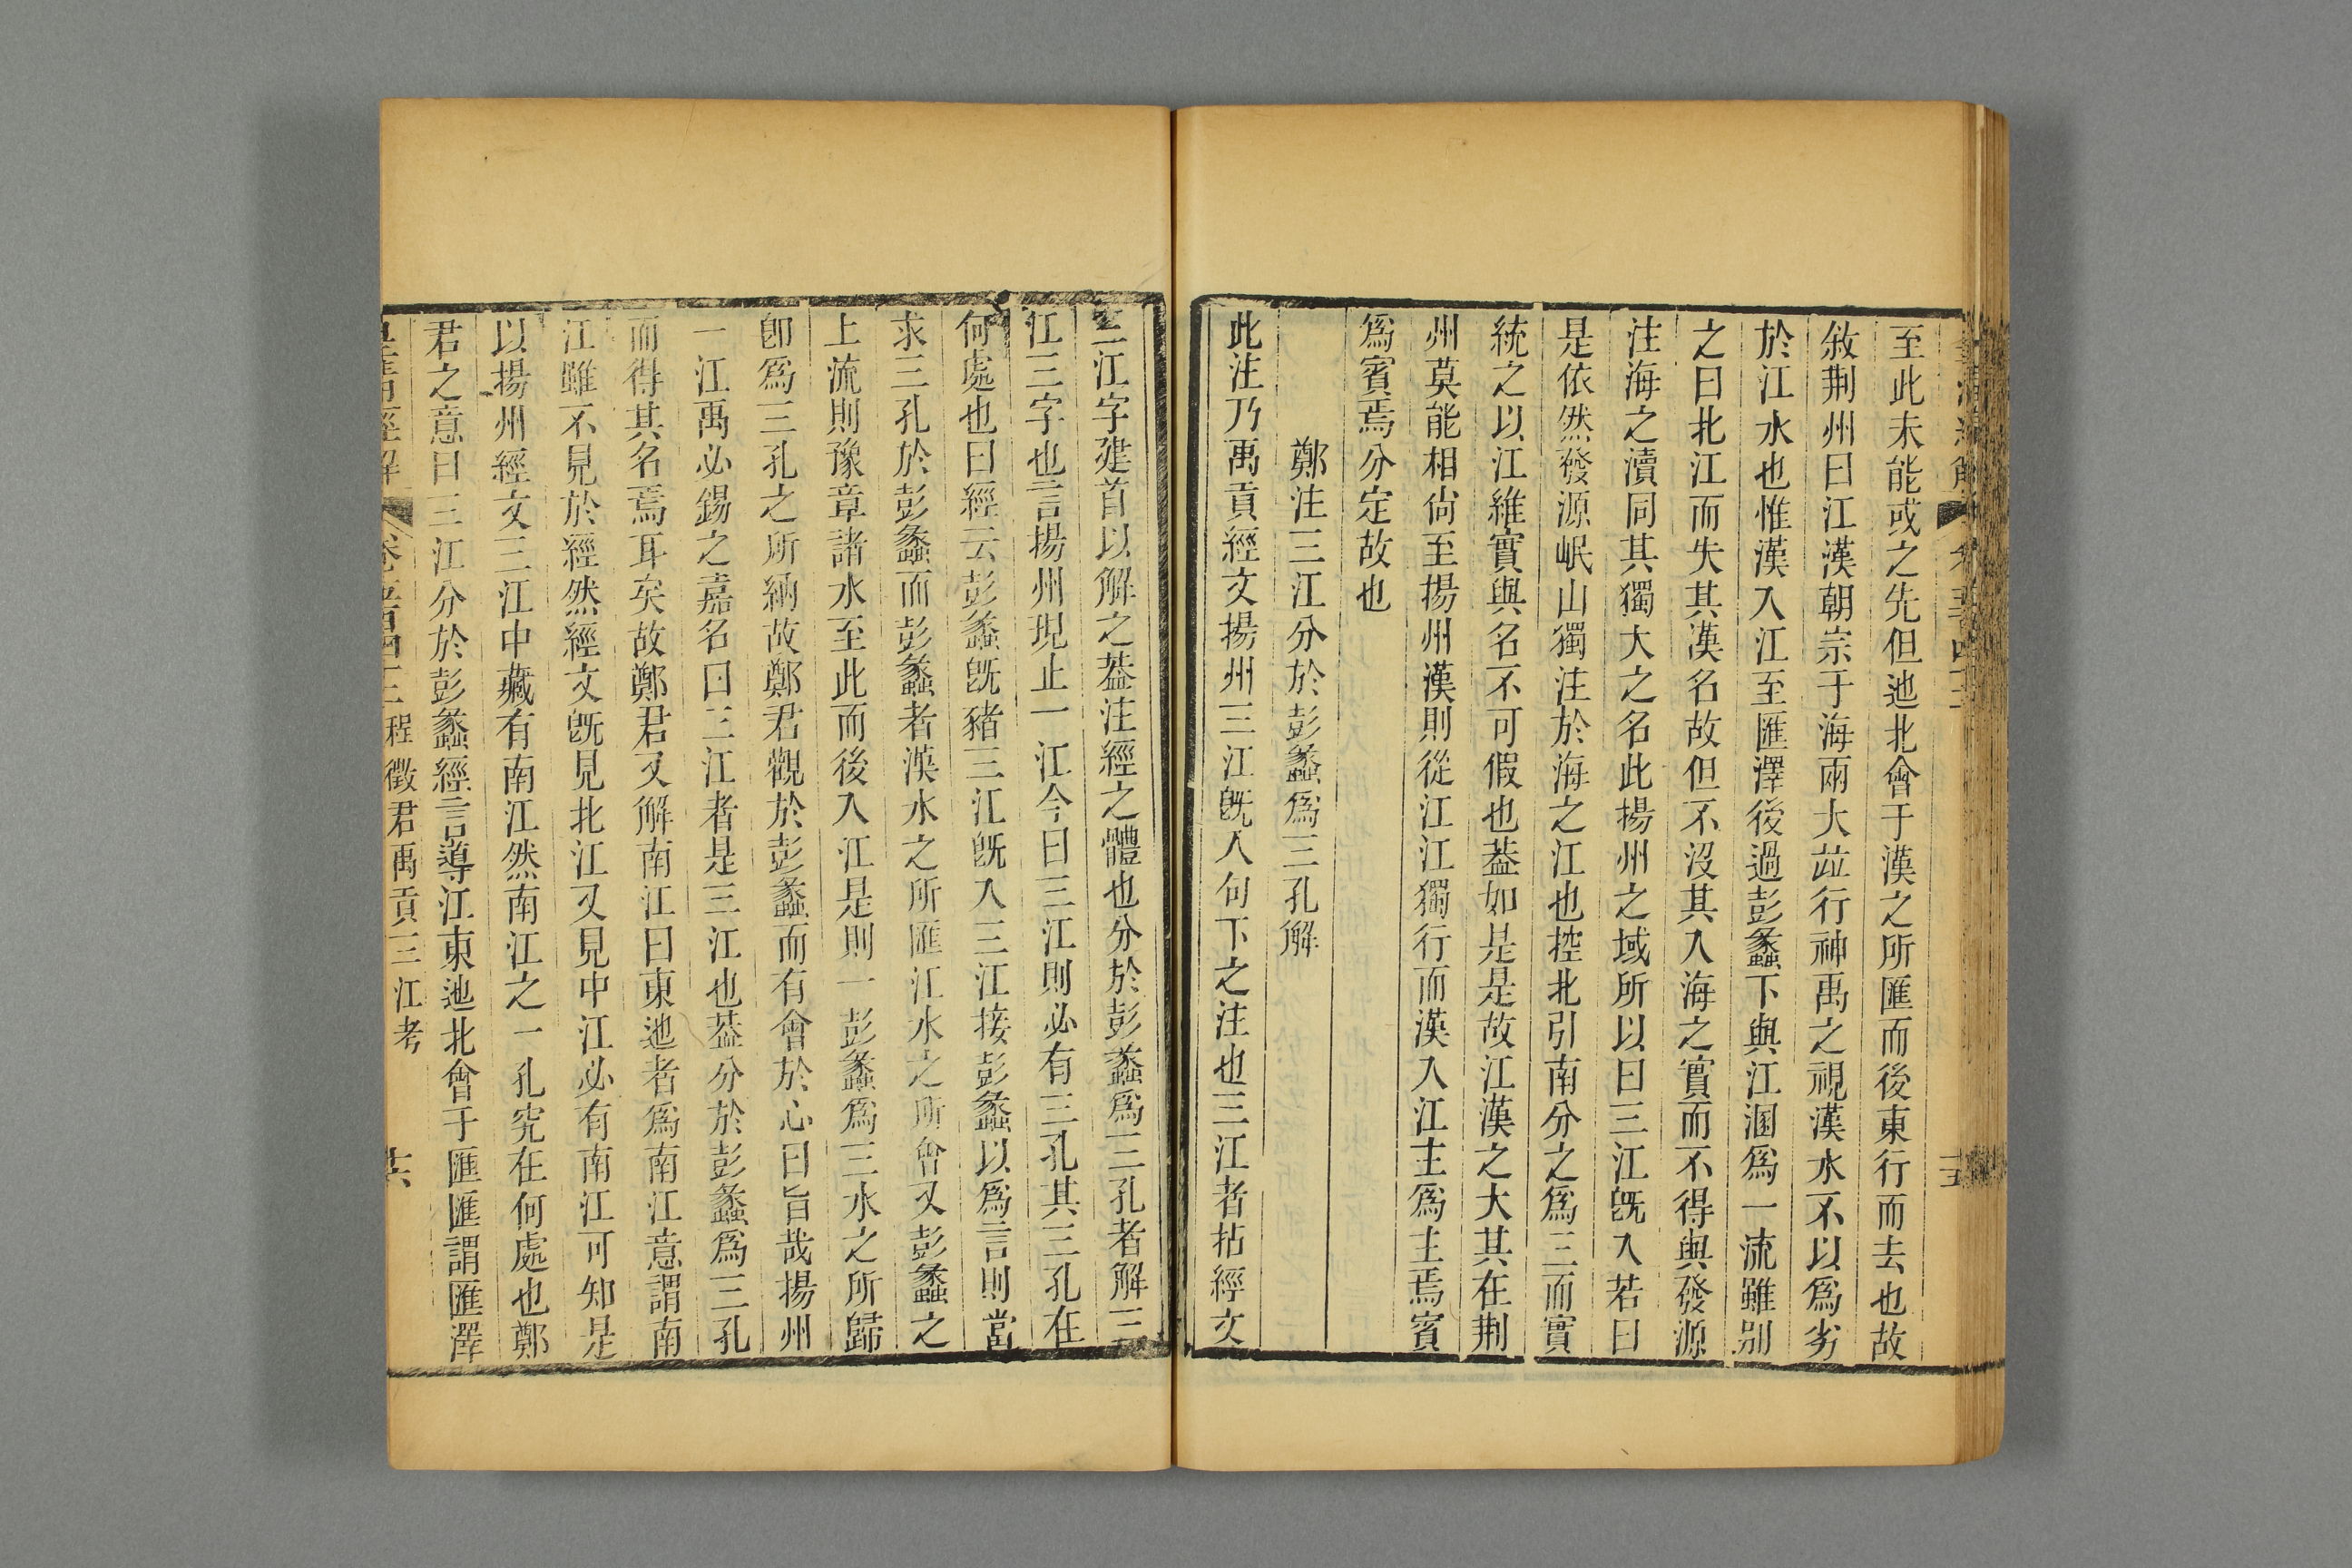 至此未能或之先但迆北會于漢之所匯而後東行而去也故
敘荆州曰江漢朝宗于海兩大竝行神禹之視漢水不以爲劣
於江水也惟漢入江至匯澤後過彭蠡下與江溷爲一流雖别
之曰北江而失其漢名故但不沒其入海之實而不得與發源
注海之瀆同其獨大之名此揚州之域所以曰三江旣入若曰
是依然發源岷山獨注於海之江也控北引南分之爲三而實
統之以江維實與名不可假也葢如是是故江漢之大其在荆
州莫能相尙至揚州漢則從江江獨行而漢入江主爲主焉賓
爲賓焉分定故也
鄭注三江分於彭蠡爲三孔解
此注乃禹貢經文揚州三江旣入句下之注也三江者拈經文
三江字建首以解之葢注經之體也分於彭蠡爲三孔者解三
江三字也言揚州現止一江今曰三江則必有三孔其三孔在
何處也曰經云彭蠡旣豬三江旣入三江接彭蠡以爲言則當
求三孔於彭蠡而彭蠡者漢水之所匯江水之所會又彭蠡之
上流則豫章諸水至此而後入江是則一彭蠡爲三水之所歸
卽爲三孔之所納故鄭君觀於彭蠡而有會於心曰旨哉揚州
一江禹必錫之嘉名曰三江者是三江也葢分於彭蠡爲三孔
而得其名焉耳矣故鄭君又解南江曰東迆者爲南江意謂南
江雖不見於經然經文旣見北江又見中江必有南江可知是
以揚州經文三江中藏有南江然南江之一孔究在何處也鄭
君之意曰三江分於彭蠡經言導江東迆北會于匯匯謂匯澤
皇清經解 卷五百四十三 程徵君禹貢三江考 十六